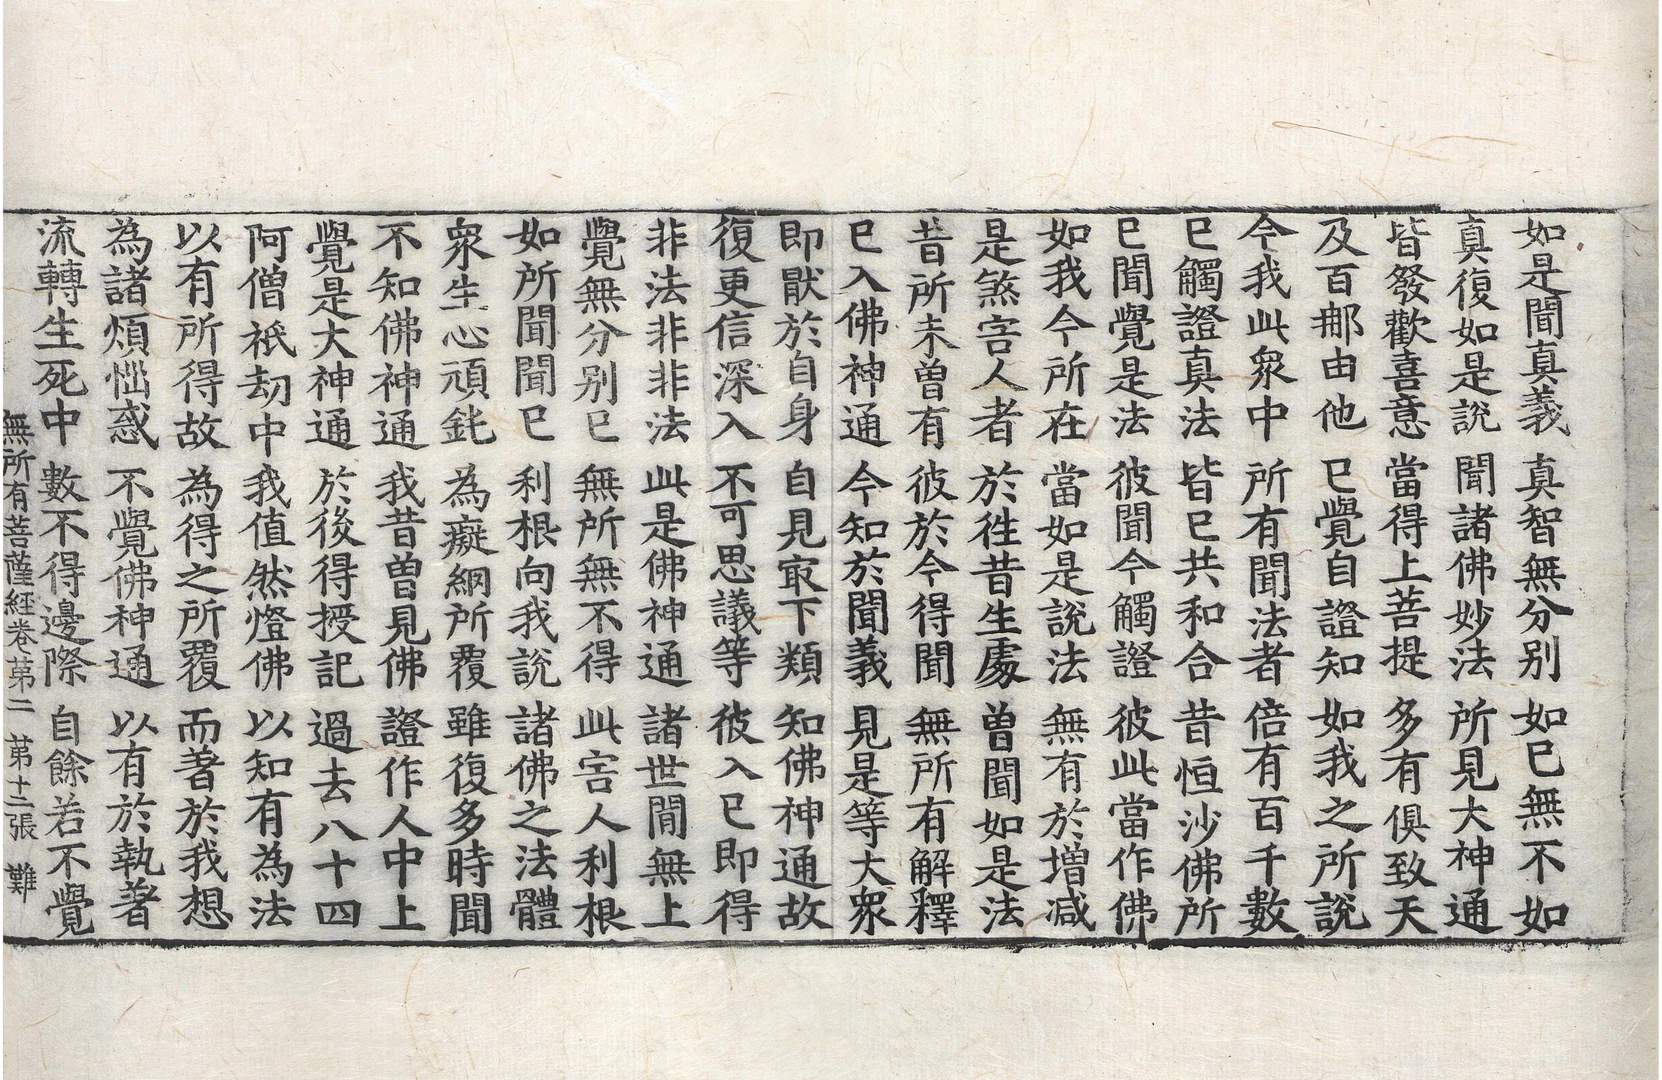 如是聞真義 真智無分別 如已無不如
真復如是說 聞諸佛妙法 所見大神通
皆發歡喜意 當得上菩提 多有俱致天
及百那由他 已覺自證知 如我之所說
今我此衆中 所有聞法者 倍有百千數
已觸證真法 皆已共和合 昔恒沙佛所
已聞覺是法 彼聞今觸證 彼此當作佛
如我今所在 當如是說法 無有於增減
是煞害人者 於徃昔生處 曽聞如是法
昔所未曽有 彼於今得聞 無所有解釋
已入佛神通 今知於聞義 見是等大衆
即猒於自身 自見冣下類 知佛神通故
復更信深入 不可思議等 彼入已即得
非法非非法 此是佛神通 諸世間無上
覺無分别已 無所無不得 此害人利根
如所聞聞已 利根向我說 諸佛之法體
衆生心頑鈍 為癡網所覆 雖復多時聞
不知佛神通 我昔曽見佛 證作人中上
覺是大神通 於後得授記 過去八十四
阿僧祇劫中 我值然燈佛 以知有為法
以有所得故 為得之所覆 而著於我想
為諸煩惱惑 不覺佛神通 以有於執著
流轉生死中 數不得邊際 自餘若不覺
無所有菩薩經卷第二 第十二張 難